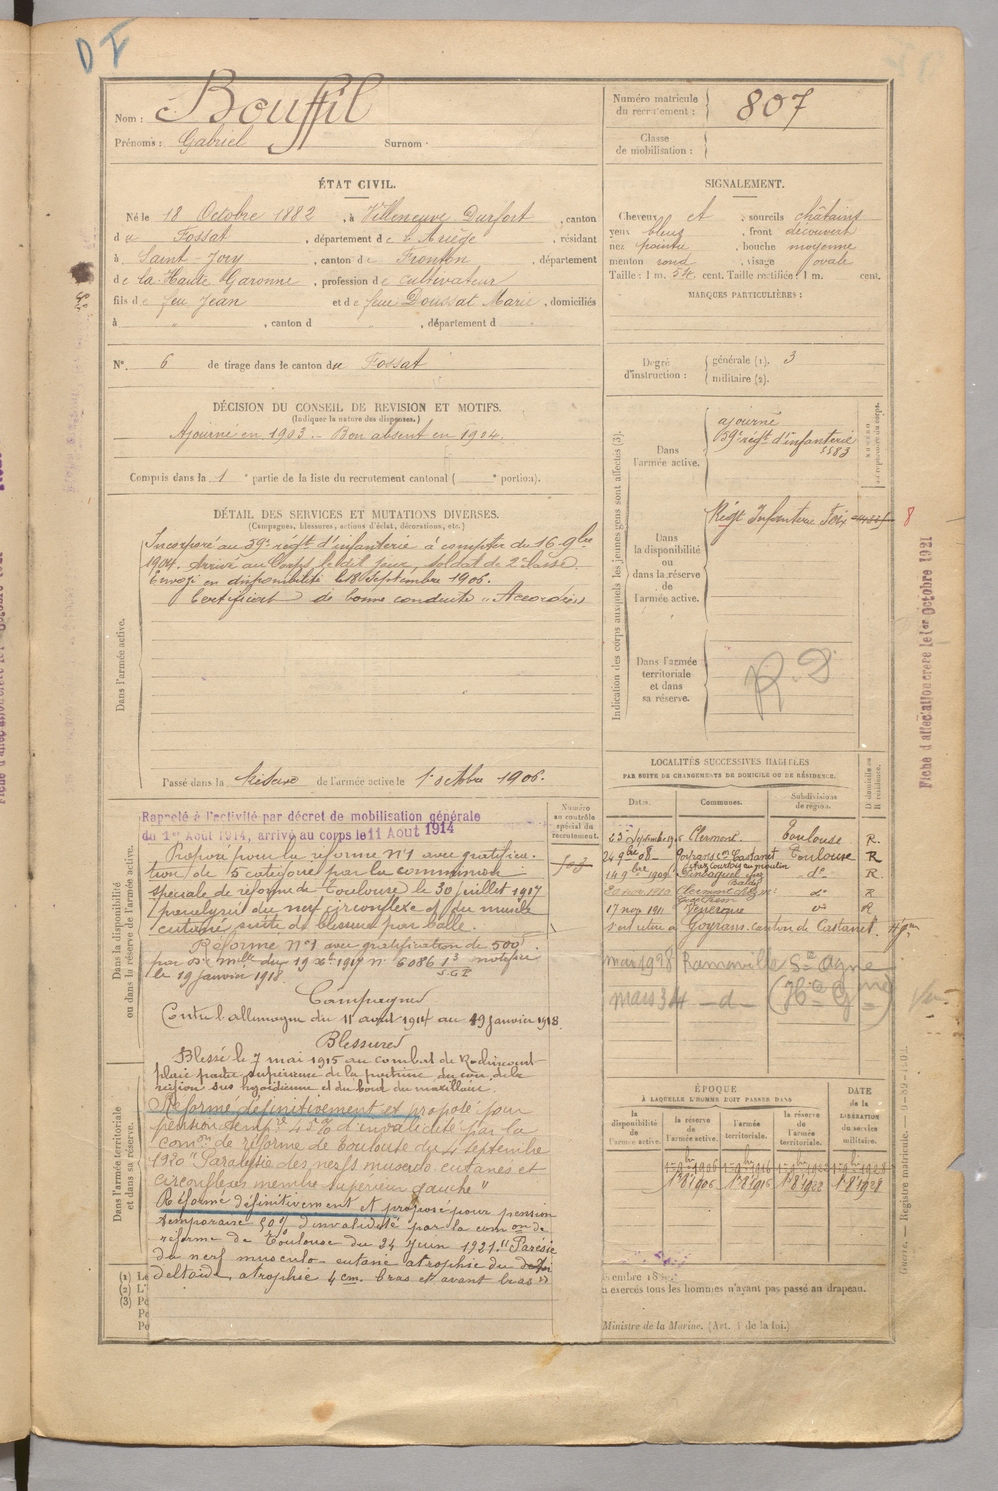 DI
Nom : Bouffil
Prénoms : Gabriel Surnom :
Numéro matricule du recrutement : 807
Classe de mobilisation :
ÉTAT CIVIL.
Né le 18 Octobre 1882, à Villeneuve Durfort, canton
du Fossat, département de l'Ariège, résidant
à Saint-Jory, canton de Fronton, département
de la Haute Garonne, profession de cultivateur
fils de feu Jean et de feue Doussat Marie, domiciliés
à " , canton d , département d
N° 6 de tirage dans le canton du Fossat
SIGNALEMENT.
Cheveux et , sourcils châtains
yeux bleus , front découvert
nez pointu , bouche moyenne
menton rond , visage ovale
Taille : 1 m. 54 cent. Taille rectifiée : 1 m. cent.
MARQUES PARTICULIÈRES :
Degré d'instruction : générale (1). 3
militaire (2).
DÉCISION DU CONSEIL DE REVISION ET MOTIFS.
(Indiquer la nature des dispenses.)
Ajourné en 1903 – Bon absent en 1904.
Compris dans la 1e partie de la liste du recrutement cantonal ( e portion).
DÉTAIL DES SERVICES ET MUTATIONS DIVERSES.
(Campagnes, blessures, actions d'éclat, décorations, etc.)
Dans l'armée active.
Incorporé au 59e régt d'infanterie à compter du 16 9bre
1904. Arrivé au Corps le dit jour, soldat de 2e classe.
Envoyé en disponibilité le 18 Septembre 1906.
Certificat de bonne conduite "Accordé"
Passé dans la Réserve de l'armée active le 1er octobre 1906.
Indication des corps auxquels les jeunes gens sont affectés (3).
Dans l'armée active.
ajourné
59e régt d'infanterie
5583
Dans la disponibilité ou dans la réserve de l'armée active.
Régt Infanterie Foix
8
Dans l'armée territoriale et dans sa réserve.
R.D
Fiche d'affectation créée le 1er Octobre 1921
Dans la disponibilité ou dans la réserve de l'armée active.
Rappelé à l'activité par décret de mobilisation générale
du 1er Août 1914, arrivé au corps le 11 Août 1914
Proposé pour la réforme n°1 avec gratifica-
tion de 5e catégorie par la commission
spéciale de réforme de Toulouse le 30 juillet 1917
"paralysie du nerf circonflexe et du musculo
cutané, suite de blessure par balle.
Réforme N°1 avec gratification de 500f
par D. mlle du 19 Xbre 1917 n° 6086 notifiée
le 19 janvier 1918.
Campagnes
Contre l'Allemagne du 11 août 1914 au 19 Janvier 1918.
Blessures
Blessé le 7 mai 1915 au combat de Roclincourt
plaie partie supérieure de la poitrine du cou, de la
région sus hyoïdienne et du bord du maxillaire.
Numéro au contrôle spécial du recrutement.
Dans l'armée territoriale et dans sa réserve.
Réformé définitivement et proposé pour
pension temp. 45% d'invalidité par la
comon de réforme de Toulouse du 4 Septembre
1920 "Paralysie des nerfs musculo cutanés et
circonflexes membre supérieur gauche"
Réformé définitivement et proposé pour pension
temporaire 50% d'invalidité par la comon de
réforme de Toulouse du 24 Juin 1921. "Parésie
du nerf musculo-cutané atrophie du
deltoïde, atrophie 4 cm. bras et avant bras"
LOCALITÉS SUCCESSIVES HABITÉES
PAR SUITE DE CHANGEMENTS DE DOMICILE OU DE RÉSIDENCE.
Dates. Communes. Subdivisions de région. D domicile ou R résidence.
23 Septembre 1906 Clermont Toulouse R.
24 9bre 08 Goyrans con Castanet Toulouse R
chez Courtois au moulin
14 9bre 1909 Pinsaguel do R
Clermont do R
17 nov 1911 Venerque do R
s'est retiré à Goyrans canton de Castanet. Hte Gne
mars 1928 Ramonville Ste Agne
mars 34 –d– (Hte Gne)
ÉPOQUE
À LAQUELLE L'HOMME DOIT PASSER DANS
la disponibilité de l'armée active. la réserve de l'armée active. l'armée territoriale. la réserve de l'armée territoriale.
DATE de la LIBÉRATION du service militaire.
1er 8bre 1906 1er 8bre 1916 1er 8bre 1922 1er 8bre 1928
(1) Le
(2) L'
(3) Po
Pe
Pe
exercés tous les hommes n'ayant pas passé au drapeau.
Ministre de la Marine. (Art. 4 de la loi.)
Registre matricule.